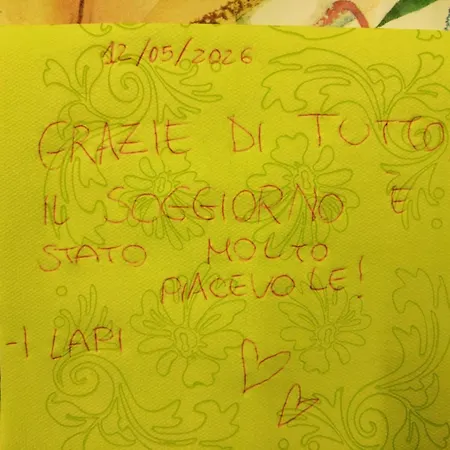 12/05/2026
GRAZIE DI TUTTO
IL SOGGIORNO È
STATO MOLTO
PIACEVOLE!
-I LAPI